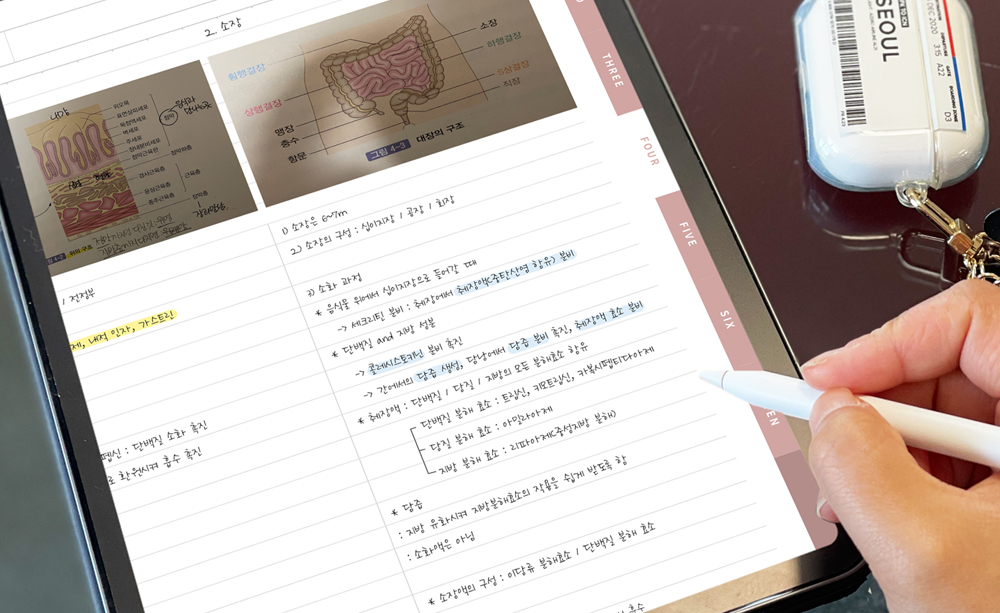 2. 소장
소장
하행결장
횡행결장
S상결장
직장
상행결장
맹장
충수
항문
그림 4-3 대장의 구조
위오목
표면상피세포
목점액세포
벽세포
주세포
점막근육판
점막
점막하층
경사근육층
윤상근육층
종주근육층
근육층
장막층
1) 소장은 6~7m
2) 소장의 구성 : 십이지장 / 공장 / 회장
3) 소화 과정
* 음식물 위에서 십이지장으로 들어갈 때
-> 세크리틴 분비 : 췌장에서 췌장액(중탄산염 함유) 분비
* 단백질 and 지방 성분
-> 콜레시스토키닌 분비 촉진
-> 간에서의 담즙 생성, 담낭에서 담즙 분비 촉진, 췌장액 효소 분비
* 췌장액 : 단백질 / 당질 / 지방의 모든 분해효소 함유
단백질 분해 효소 : 트립신, 키모트립신, 카복시펩티다아제
당질 분해 효소 : 아밀라아제
지방 분해 효소 : 리파아제(중성지방 분해)
* 담즙
: 지방 유화시켜 지방분해효소의 작용을 쉽게 받도록 함
: 소화액은 아님
* 소장액의 구성 : 이당류 분해효소 / 단백질 분해 효소
흡수
/ 전정부
제, 내적 인자, 가스트린
펩신 : 단백질 소화 촉진
로 환원시켜 흡수 촉진
THREE
FOUR
FIVE
SIX
EN
SEOUL
DEC 2020
3:15
A22
D3
BOARDING ZONE